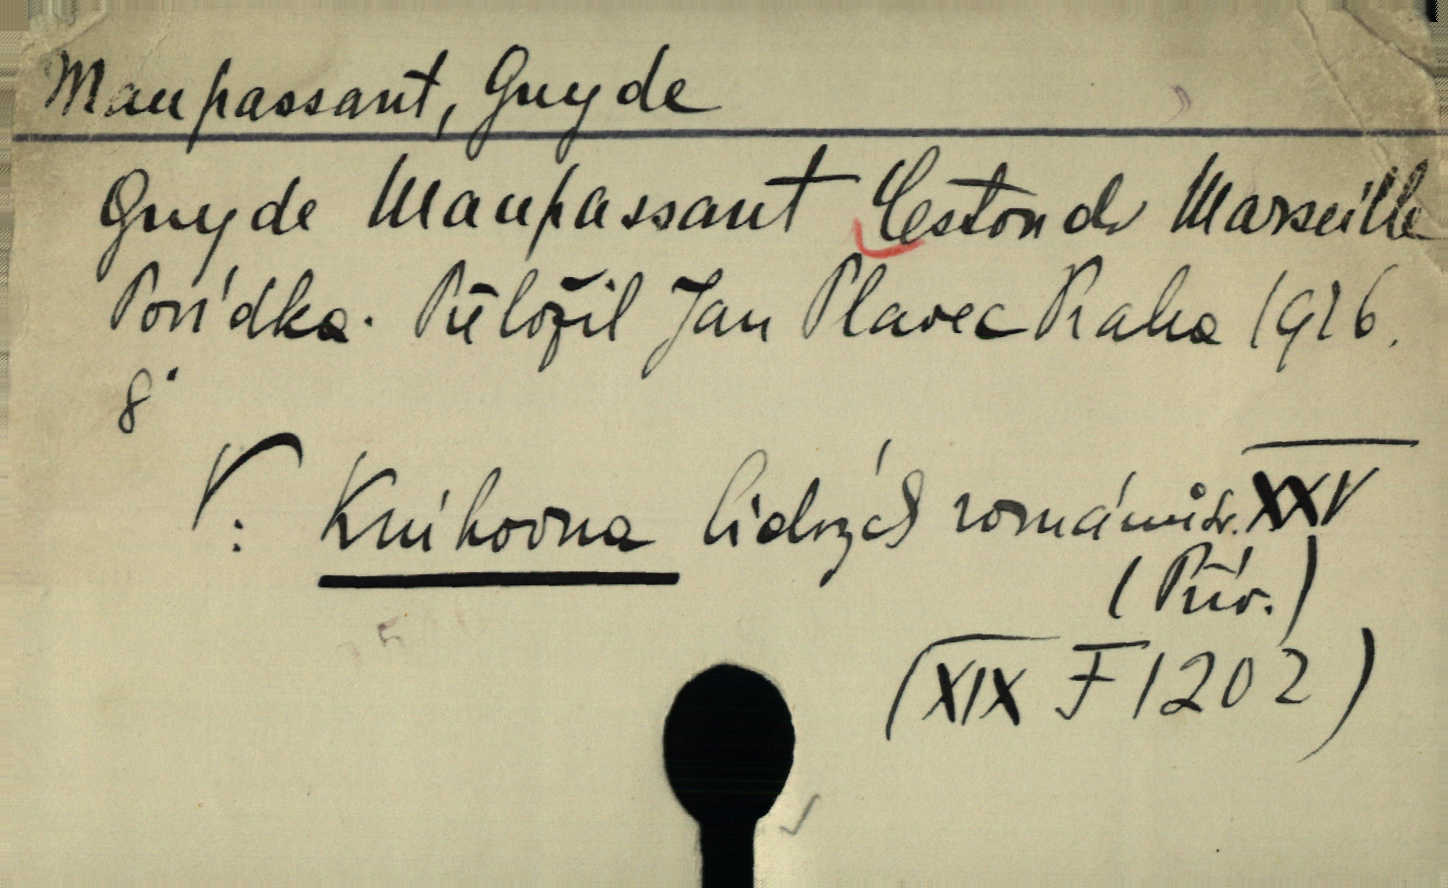 Maupassant, Guy de
Guy de Maupassant Cestou do Marseille
Povídka. Přeložil Jan Plavec Praha 1926.
8°
V: Knihovna lidových románů sv. XXV
(Přív.)
(XIX F 1202)